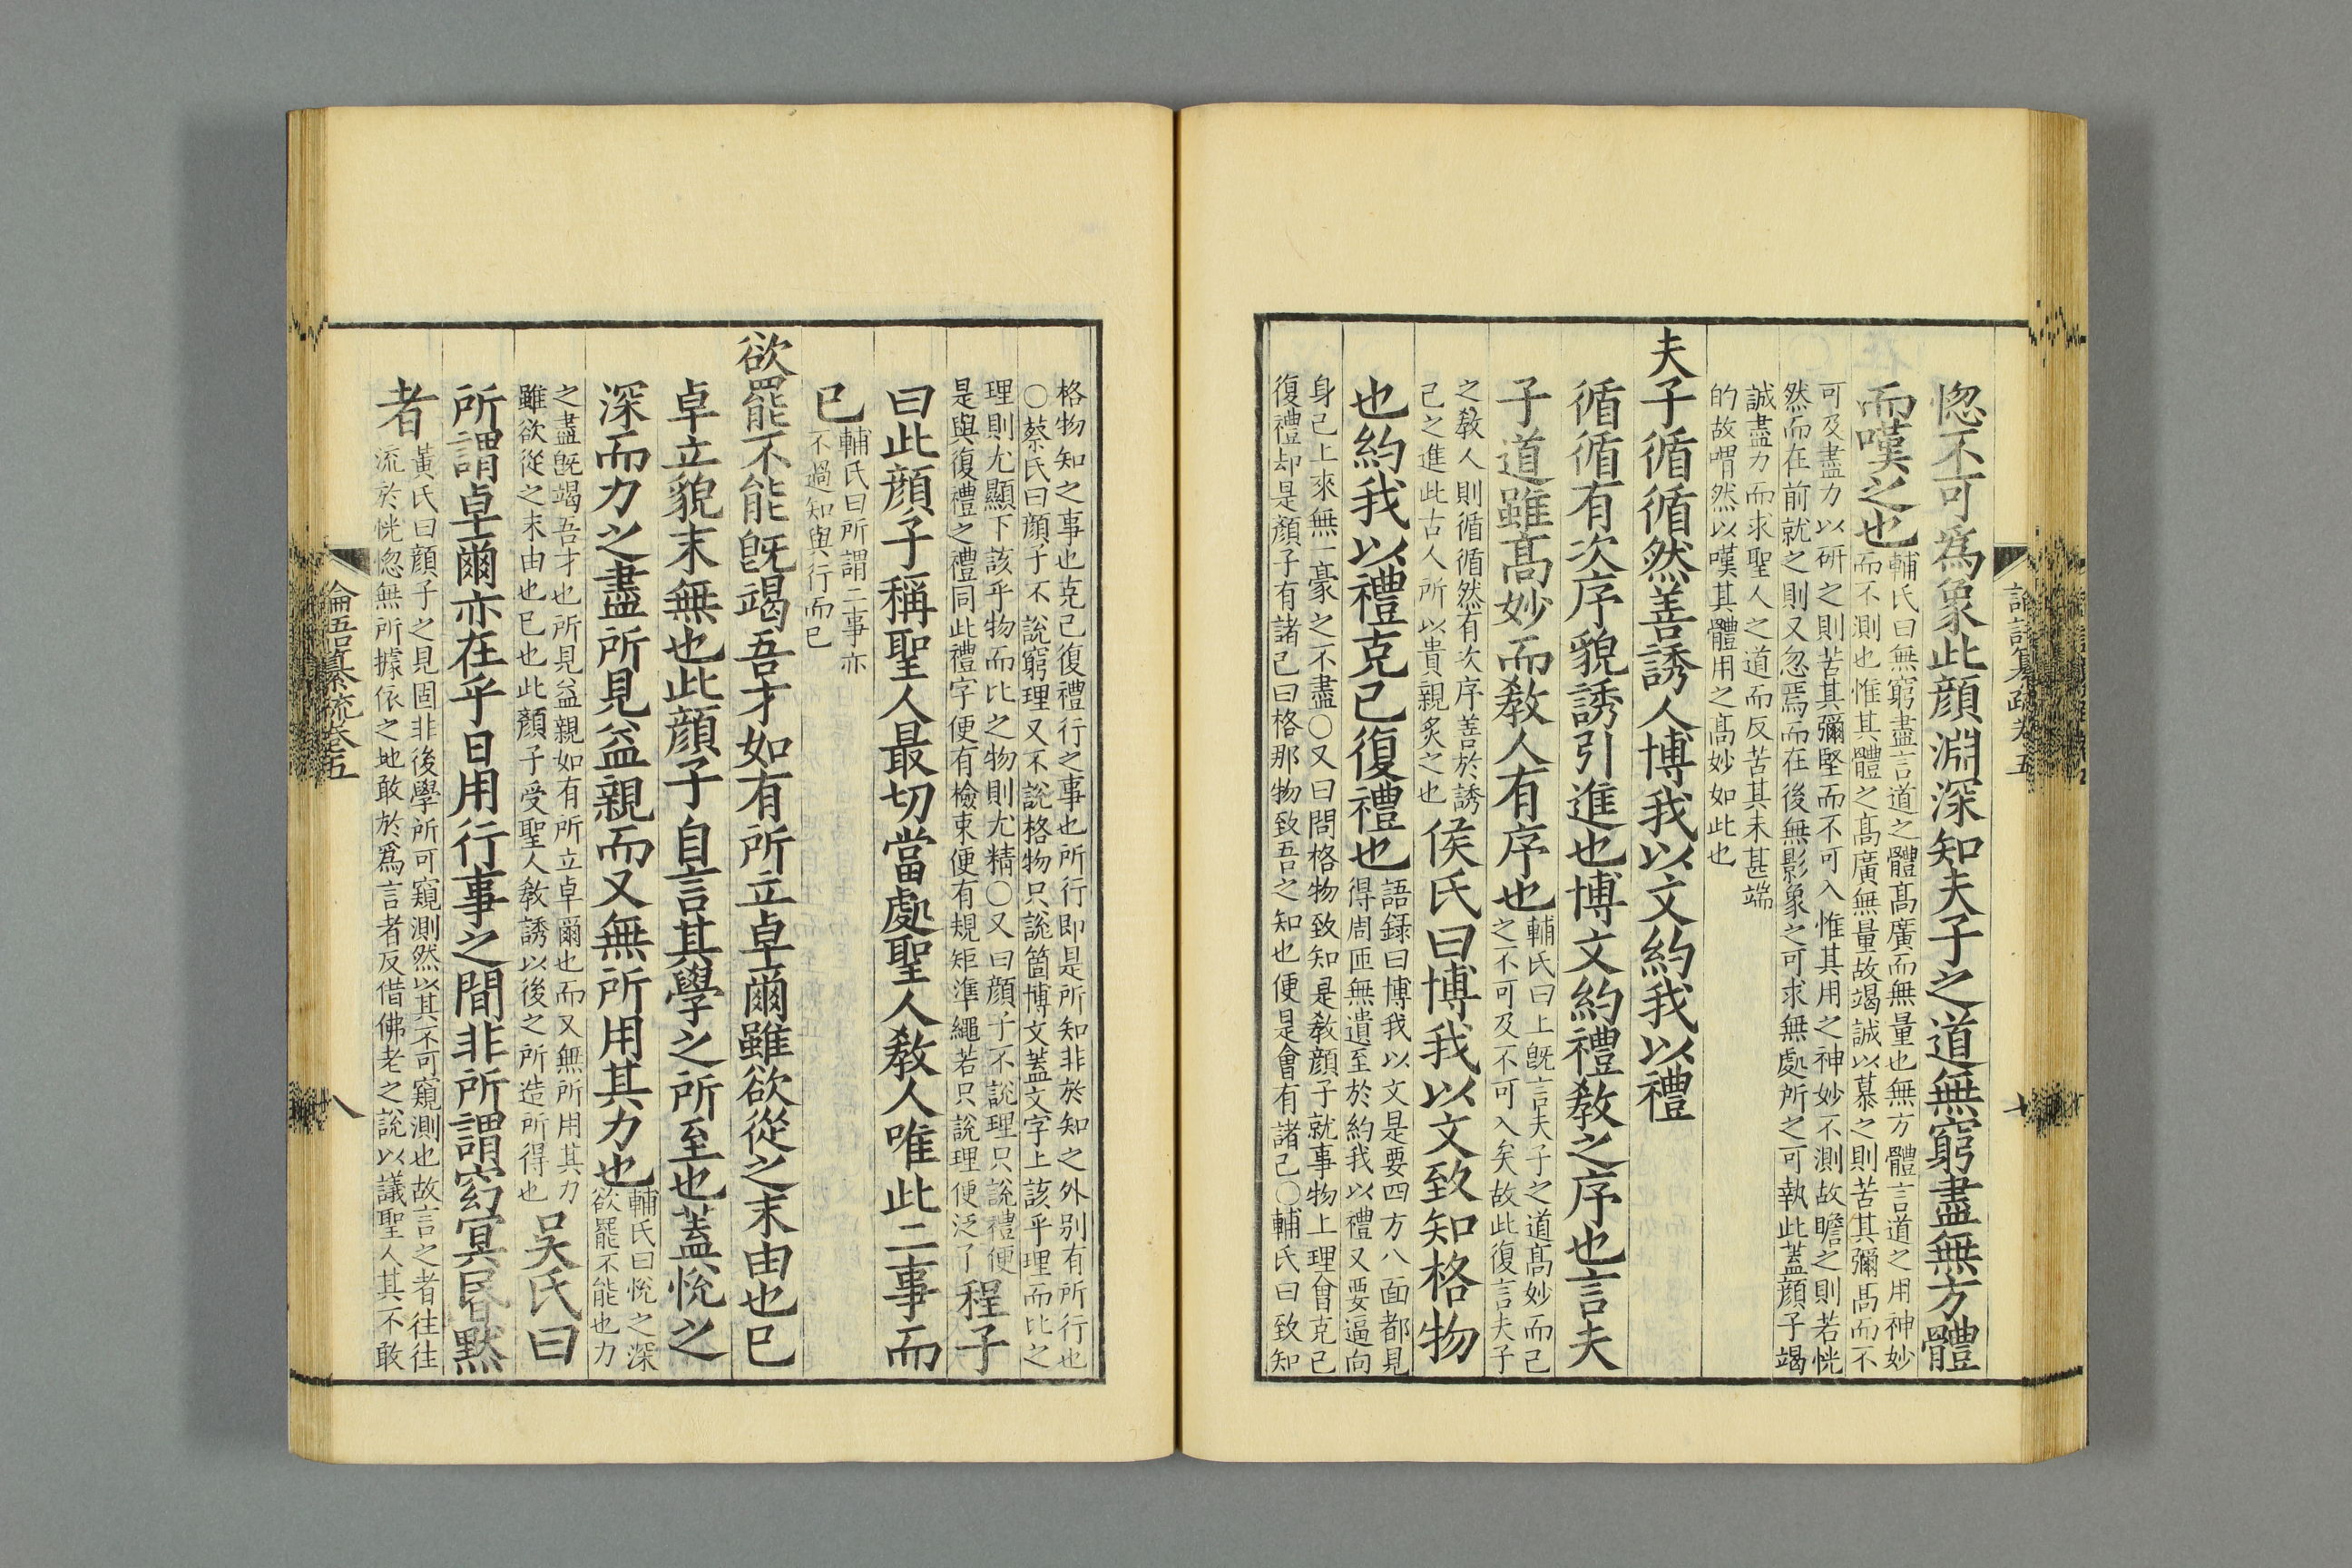 惚不可爲象此顔淵深知夫子之道無窮盡無方體
而嘆之也
輔氏曰無窮盡言道之體髙廣而無量也無方體言道之用神妙
而不測也惟其體之髙廣無量故竭誠以慕之則苦其彌髙而不
可及盡力以硏之則苦其彌堅而不可入惟其用之神妙不測故瞻之則若恍
然而在前就之則又忽焉而在後無影象之可求無處所之可執此蓋顔子竭
誠盡力而求聖人之道而反苦其未甚端
的故喟然以嘆其體用之髙妙如此也
夫子循循然善誘人博我以文約我以禮
循循有次序貌誘引進也博文約禮敎之序也言夫
子道雖髙妙而敎人有序也
輔氏曰上旣言夫子之道髙妙而己
之不可及不可入矣故此復言夫子
之敎人則循循然有次序善於誘
己之進此古人所以貴親炙之也
侯氏曰博我以文致知格物
也約我以禮克己復禮也
語録曰博我以文是要四方八面都見
得周匝無遺至於約我以禮又要逼向
身己上來無一豪之不盡〇又曰問格物致知是敎顔子就事物上理會克己
復禮却是顔子有諸己曰格那物致吾之知也便是會有諸己〇輔氏曰致知
論語纂疏卷五
七
格物知之事也克己復禮行之事也所行即是所知非於知之外别有所行也
〇蔡氏曰顔子不說窮理又不說格物只說箇博文蓋文字上該乎理而比之
理則尤顯下該乎物而比之物則尤精〇又曰顔子不說理只說禮便
是與復禮之禮同此禮字便有檢束便有規矩準繩若只說理便泛了
程子
曰此顔子稱聖人最切當處聖人敎人唯此二事而
已
輔氏曰所謂二事亦
不過知與行而已
欲罷不能旣竭吾才如有所立卓爾雖欲從之末由也已
卓立貌末無也此顔子自言其學之所至也蓋悅之
深而力之盡所見益親而又無所用其力也
輔氏曰悅之深
欲罷不能也力
之盡旣竭吾才也所見益親如有所立卓爾也而又無所用其力
雖欲從之末由也已也此顔子受聖人敎誘以後之所造所得也
吳氏曰
所謂卓爾亦在乎日用行事之間非所謂窈冥昬黙
者
黃氏曰顔子之見固非後學所可窺測然以其不可窺測也故言之者往往
流於恍惚無所據依之地敢於爲言者反借佛老之說以議聖人其不敢
論語纂疏卷五
八